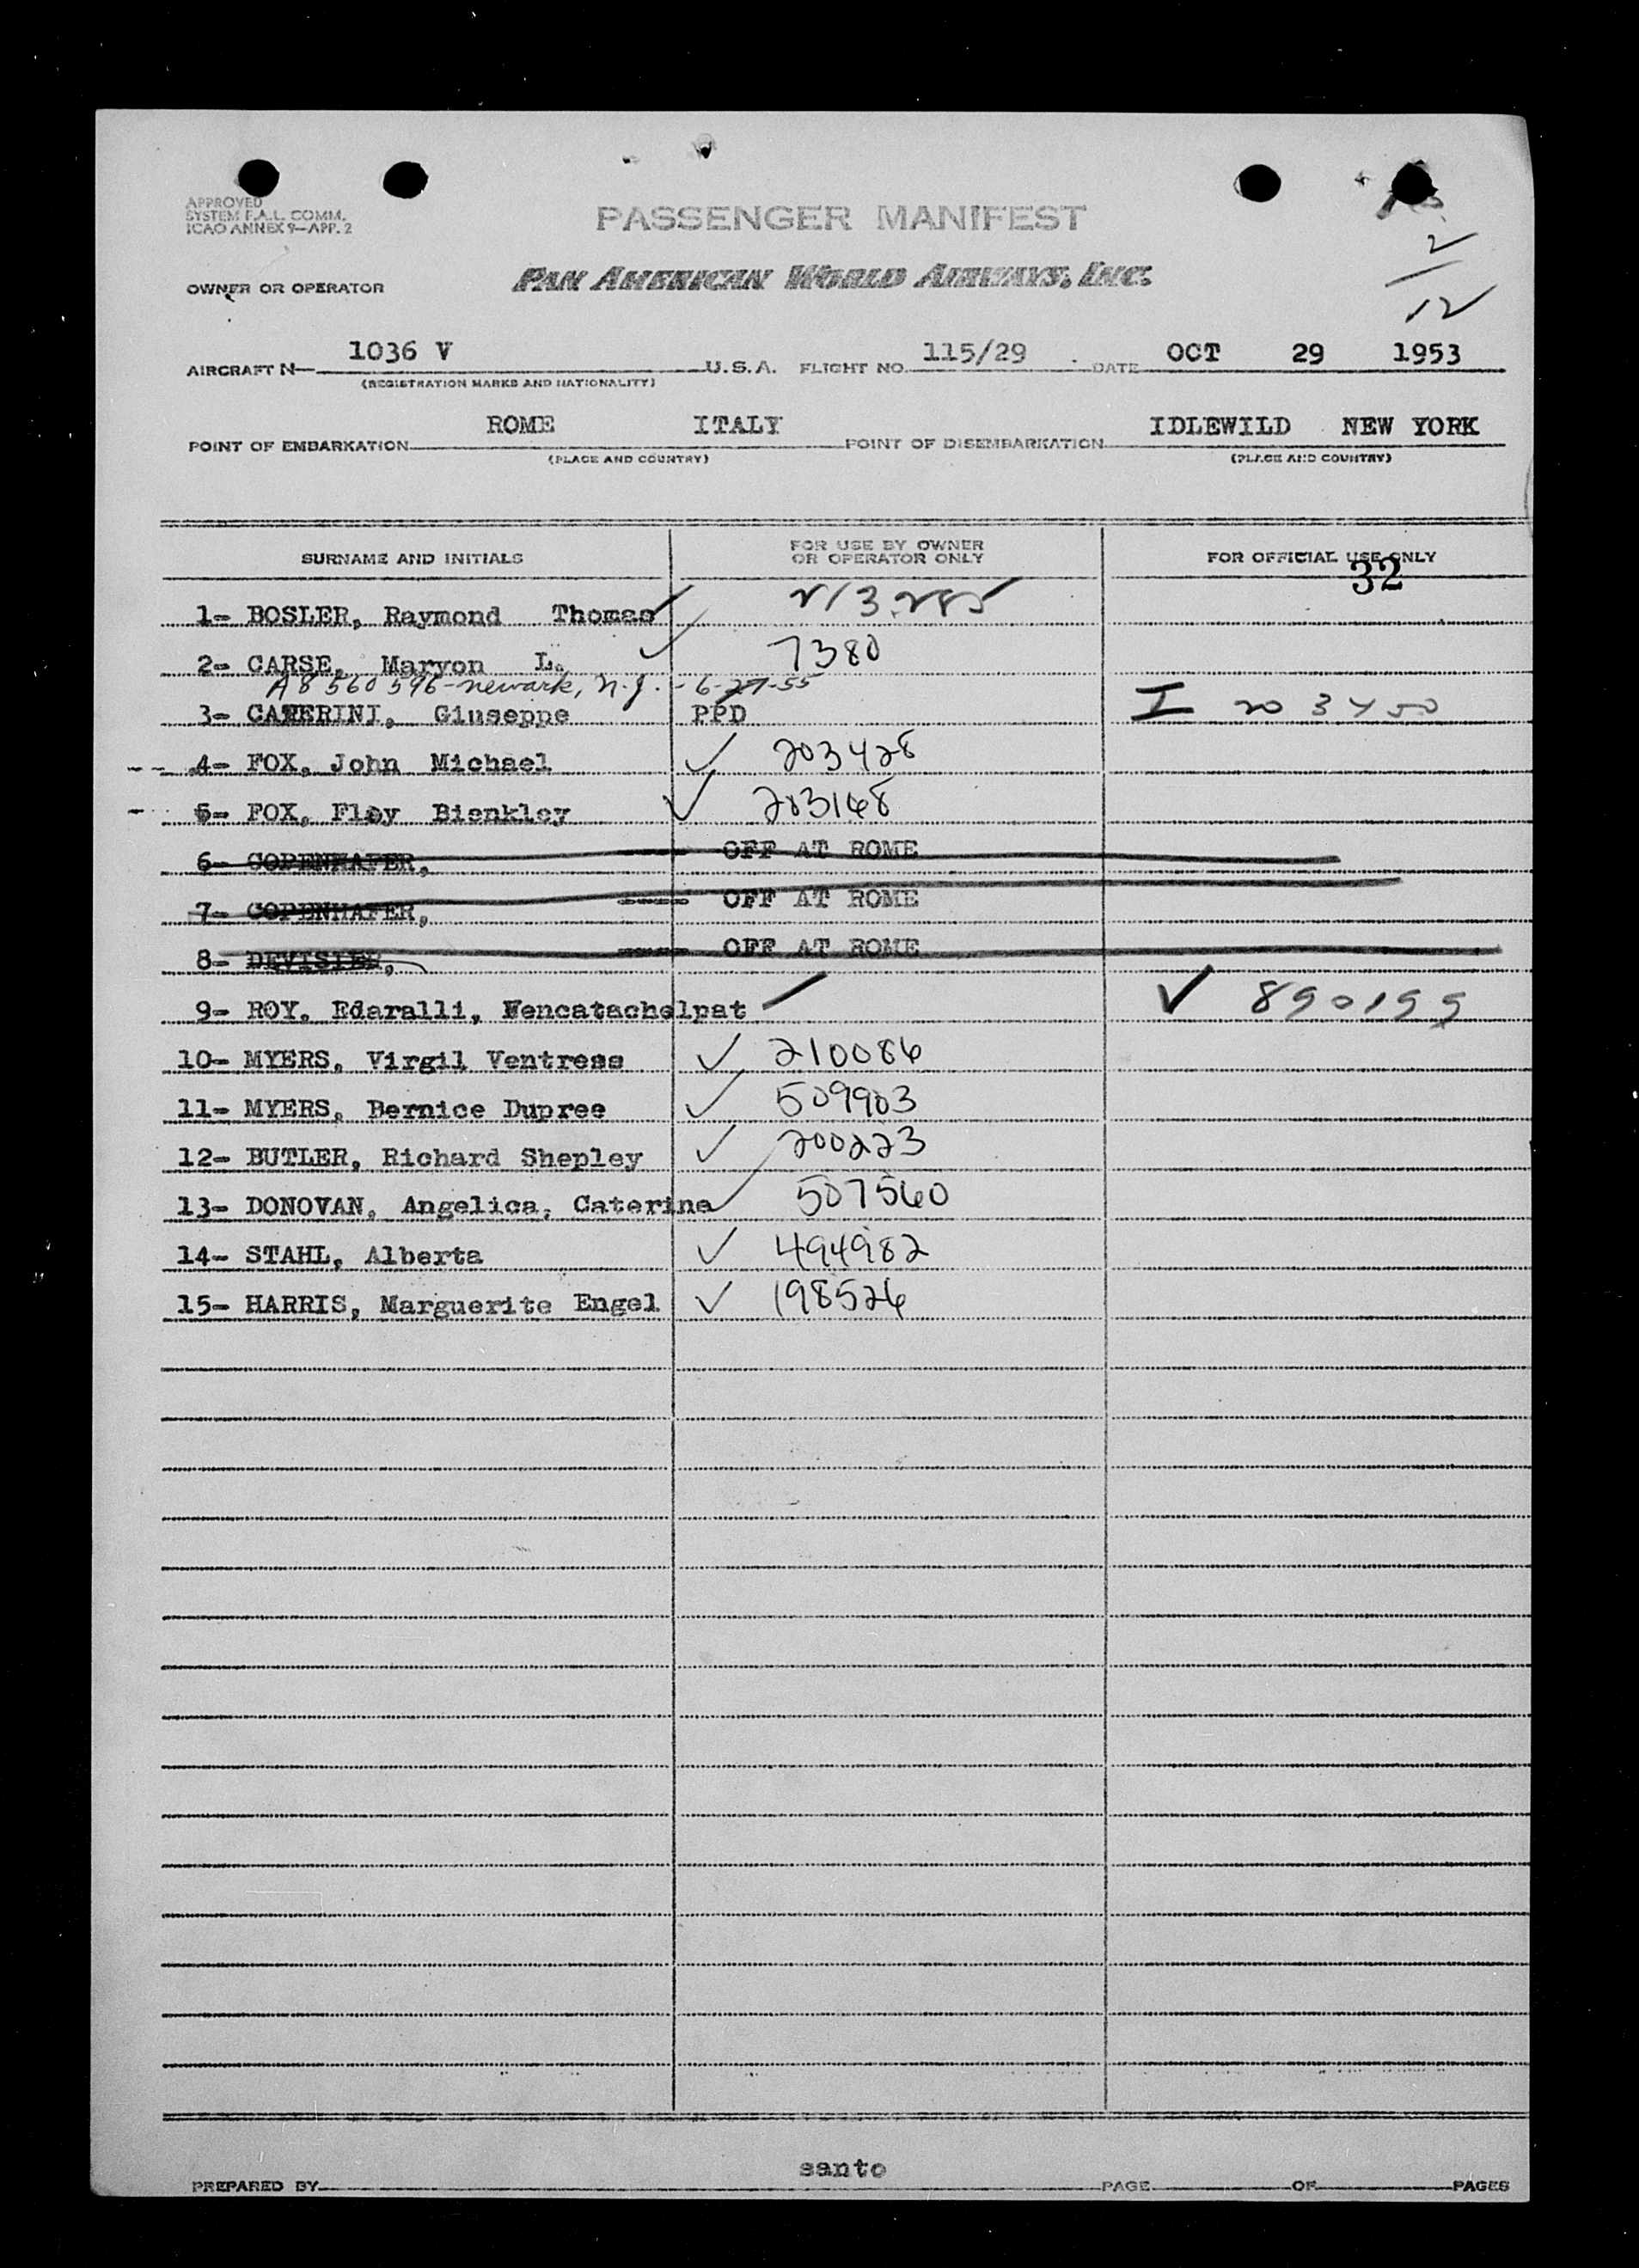 APPROVED
SYSTEM F.A.L. COMM.
ICAO ANNEX 9—APP. 2
PASSENGER MANIFEST
OWNER OR OPERATOR PAN AMERICAN WORLD AIRWAYS, INC.
2
12
AIRCRAFT N— 1036 V U.S.A. FLIGHT NO. 115/29 DATE OCT 29 1953
(REGISTRATION MARKS AND NATIONALITY)
POINT OF EMBARKATION ROME ITALY POINT OF DISEMBARKATION IDLEWILD NEW YORK
(PLACE AND COUNTRY) (PLACE AND COUNTRY)
SURNAME AND INITIALS FOR USE BY OWNER OR OPERATOR ONLY FOR OFFICIAL USE ONLY
32
1- BOSLER, Raymond Thomas ✓ 213285
2- CARSE, Maryon L. ✓ 7380
A8 560 596-newark, n.j. -6-27-55
3- CATERINI, Giuseppe PPD I 203450
4- FOX, John Michael ✓ 203428
5- FOX, Floy Bienkley ✓ 203168
6- COPENHAFER, OFF AT ROME
7- COPENHAFER, OFF AT ROME
8- OFF AT ROME
9- ROY, Edaralli, Vencatachelpat ✓ 890199
10- MYERS, Virgil Ventress ✓ 210086
11- MYERS, Bernice Dupree ✓ 509903
12- BUTLER, Richard Shepley ✓ 200223
13- DONOVAN, Angelica, Caterina ✓ 507560
14- STAHL, Alberta ✓ 494982
15- HARRIS, Marguerite Engel ✓ 198526
santo
PREPARED BY PAGE OF PAGES